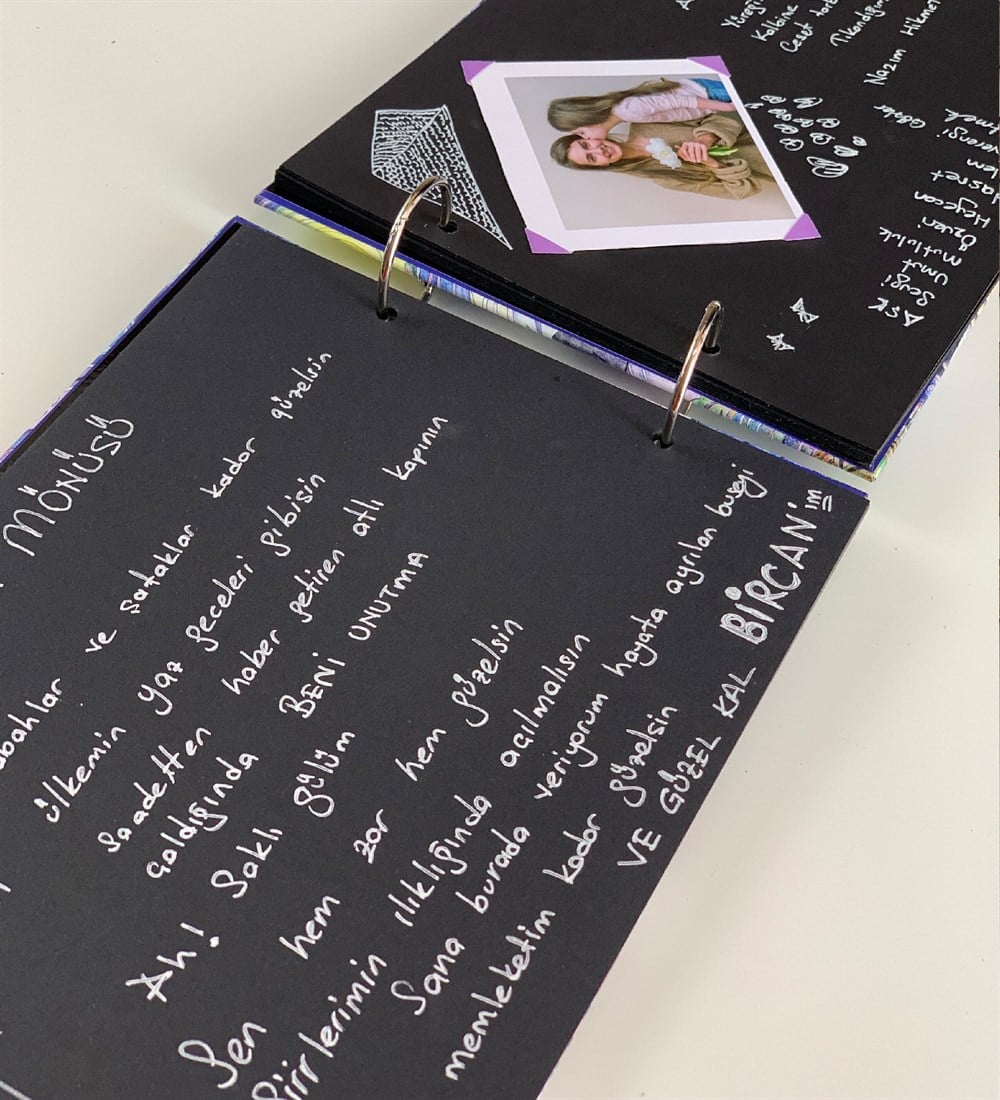 MÖNÜSÜ
abahlar ve şafaklar kadar güzelsin
ülkemin yaz geceleri gibisin
saadetten haber getiren atlı kapının
çaldığında BENİ UNUTMA
Ah! Saklı gülüm
Sen hem zor hem güzelsin
Şiirlerimin ılıklığında açılmalısın
Sana burada veriyorum hayata ayrılan buseyi
memleketim kadar güzelsin
VE GÜZEL KAL BİRCAN'ım
Yüreği
Kalbine
Ceset
Tıkandığım
Nazım Hikmet
AŞK
Sevgi
Umut
Mutluluk
Özveri
Heyecan
Hasret
Günler